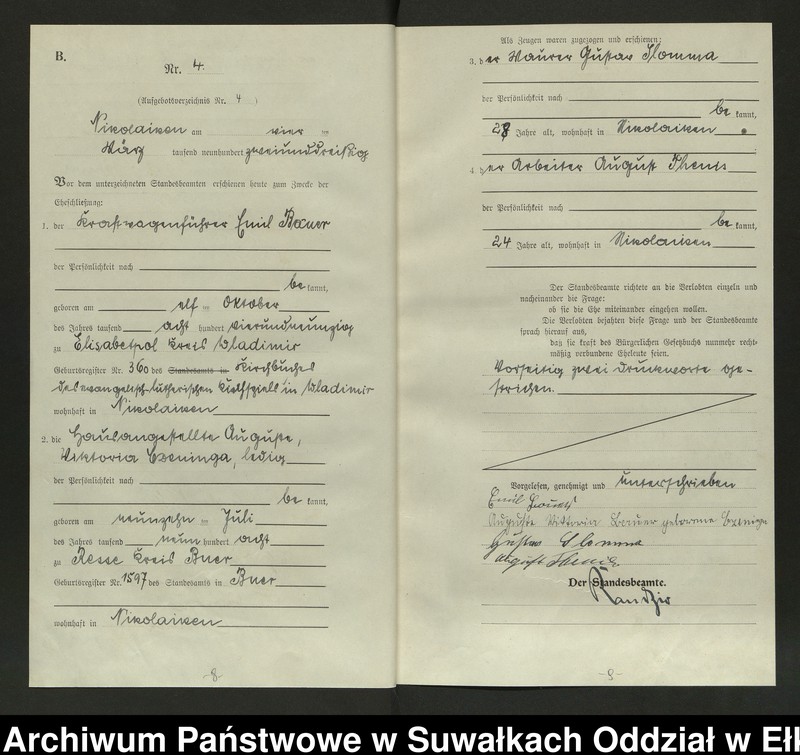 B.
Nr. 4.
(Aufgebotsverzeichnis Nr. 4 )
Nikolaiken am vier ten
März tausend neunhundert zweiunddreißig
Vor dem unterzeichneten Standesbeamten erschienen heute zum Zwecke der
Eheschließung:
1. der Kraftwagenführer Emil
der Persönlichkeit nach
be kannt,
geboren am elf ten Oktober
des Jahres tausend acht hundert vierundneunzig
zu Elisabetpol Kreis Wladimir
Geburtsregister Nr. 360 des Standesamts in Kirchbuches
des evangelisch-lutherischen Kirchspiels in Wladimir
wohnhaft in Nikolaiken
2. die Hausangestellte Auguste,
Viktoria Czeninga, ledig
der Persönlichkeit nach
be kannt,
geboren am neunzehn ten Juli
des Jahres tausend neun hundert acht
zu Resse Kreis Buer
Geburtsregister Nr. 1597 des Standesamts in Buer
wohnhaft in Nikolaiken
-8-
Als Zeugen waren zugezogen und erschienen:
3. der Maurer Gustav Slomma
der Persönlichkeit nach
be kannt,
Jahre alt, wohnhaft in Nikolaiken
4. der Arbeiter August
der Persönlichkeit nach
be kannt,
24 Jahre alt, wohnhaft in Nikolaiken
Der Standesbeamte richtete an die Verlobten einzeln und
nacheinander die Frage:
ob sie die Ehe miteinander eingehen wollen.
Die Verlobten bejahten diese Frage und der Standesbeamte
sprach hierauf aus,
daß sie kraft des Bürgerlichen Gesetzbuchs nunmehr recht-
mäßig verbundene Eheleute seien.
Vorseitig zwei Druckworte ge-
strichen.
Vorgelesen, genehmigt und unterschrieben
Emil
Auguste Viktoria geborene
Gustav Slomma
August
Der Standesbeamte.
-9-
Archiwum Państwowe w Suwałkach Oddział w Eł